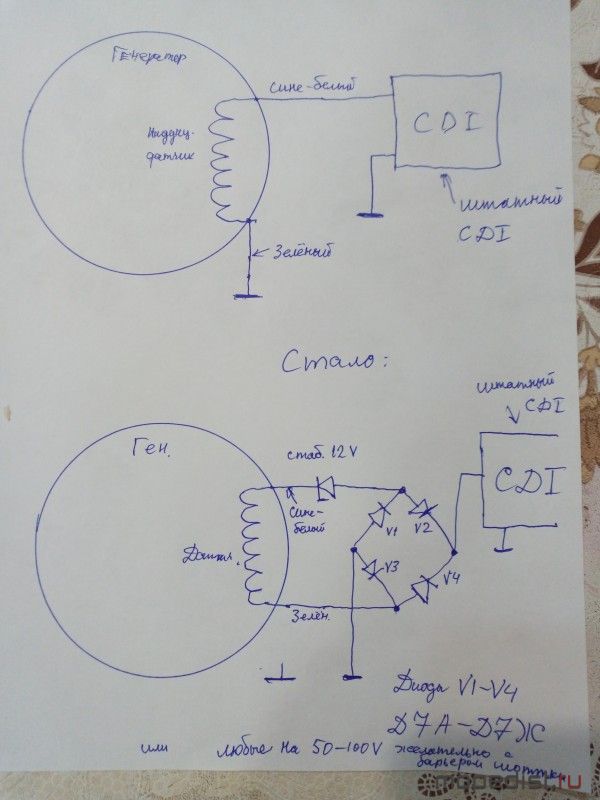 Генератор
сине-белый
CDI
Индукц.
датчик
штатный
CDI
Зелёный
Стало:
штатный
CDI
Ген.
стаб. 12V
CDI
Сине-
белый
V1
V2
V3
V4
Зелён.
Диоды V1-V4
Д7А-Д7Ж
или любые на 50-100V желательно с
барьером шоттки
mopedist.ru